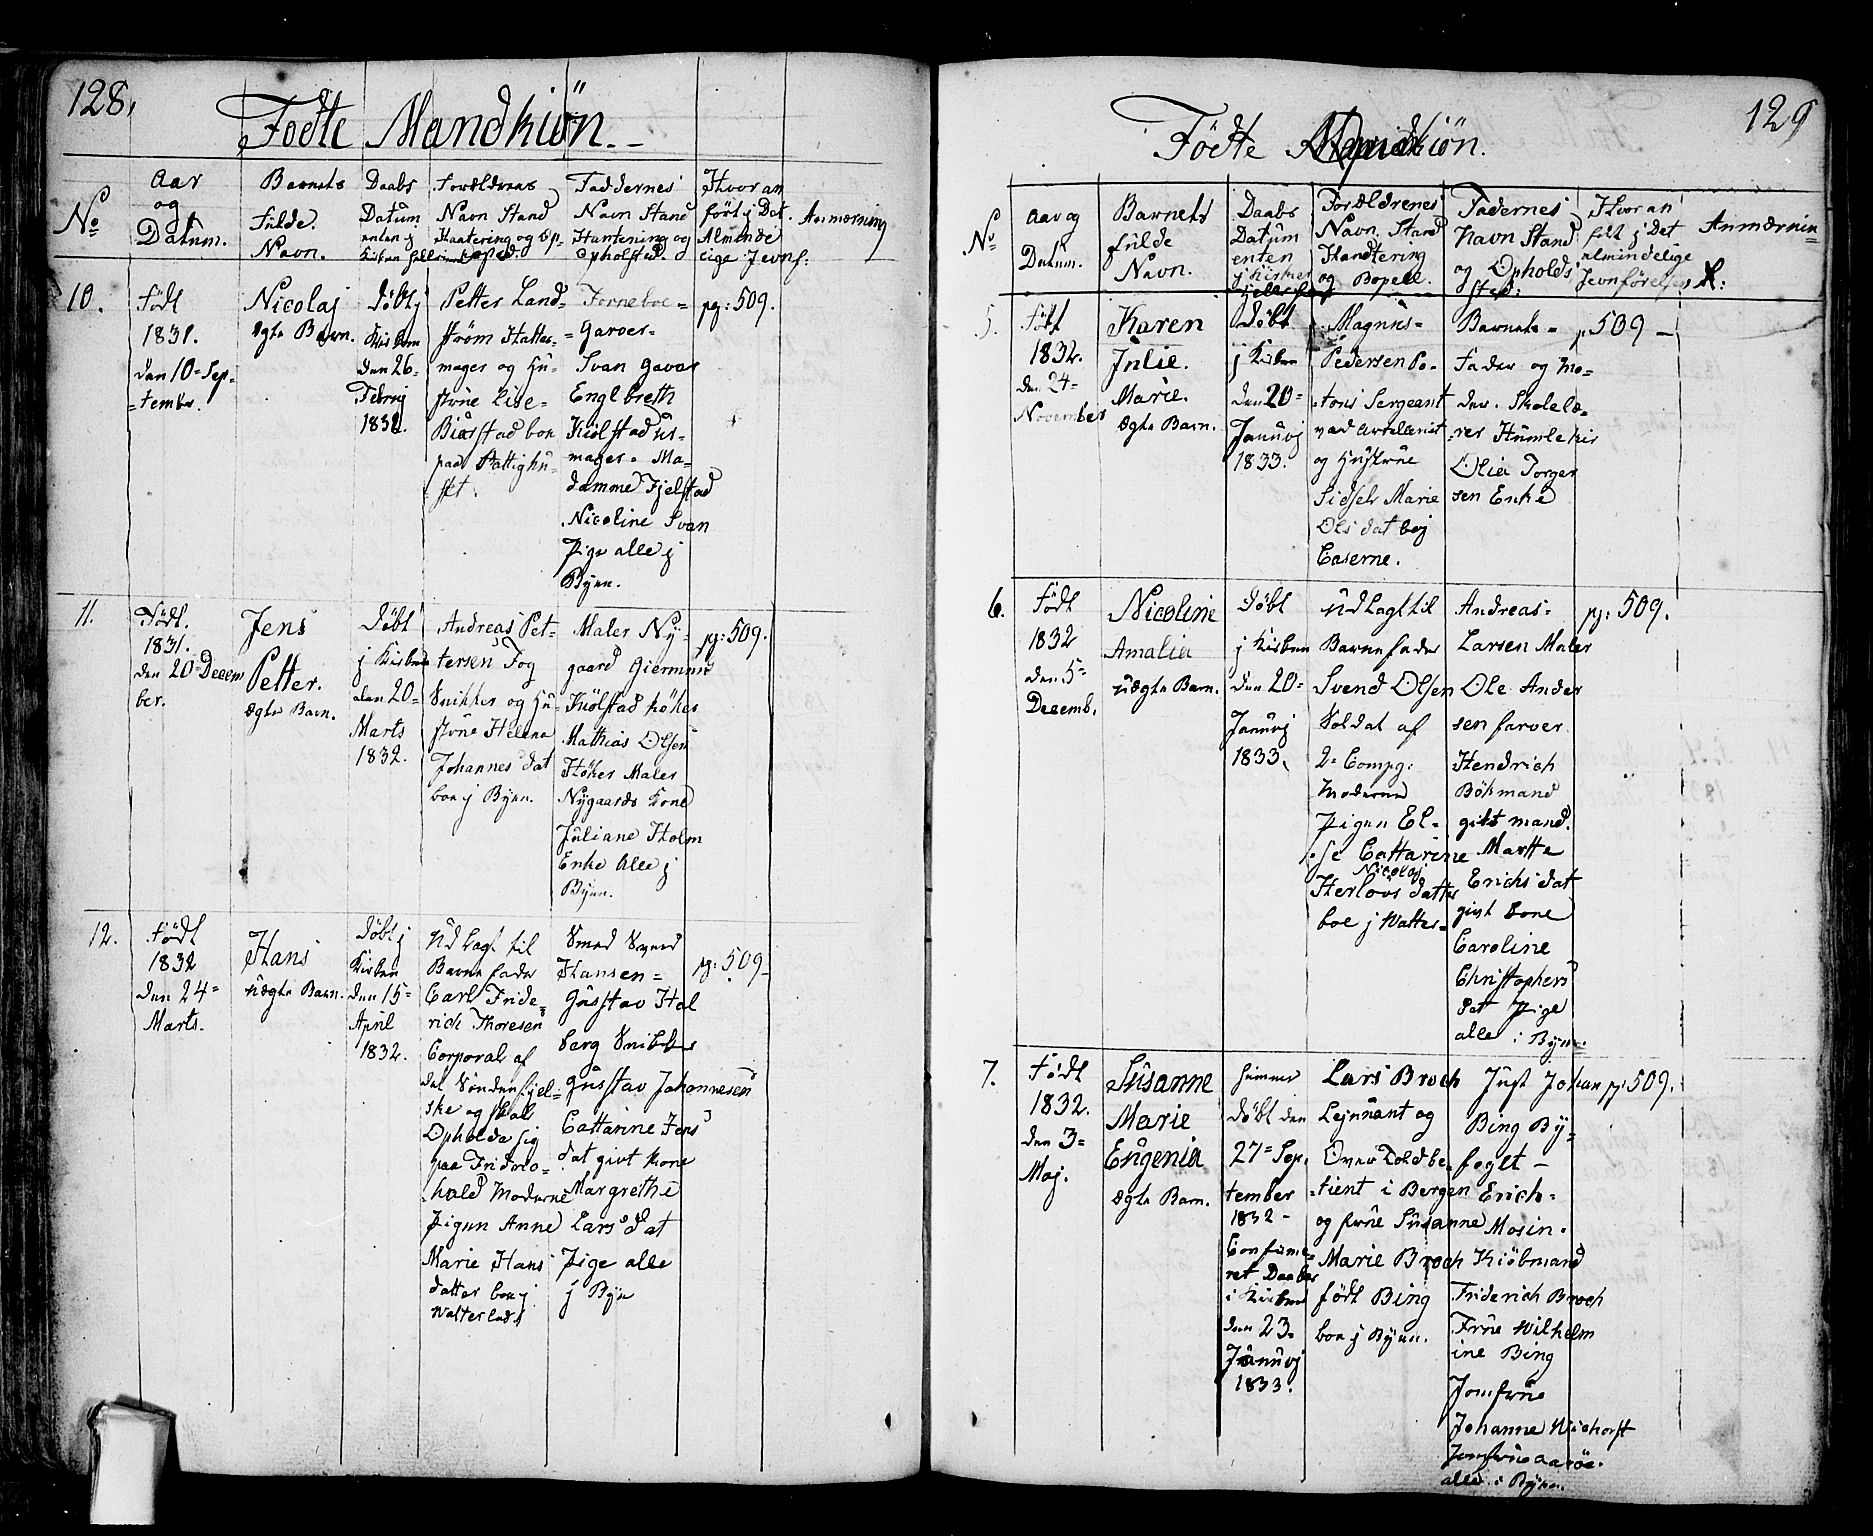 128.
Födte Mandkiön.
No
Aar
og
Datum.
Barnets
fulde.
Navn.
Daabs
Datum
enten j
Kirken
Forældrenes
Navn Stand
Hantering og
Faddernes
Navn Stand
Hantering og
Opholsted.
Hvoran
fört j Det
Almindelige
Jevnf:
Anmærning
10.
Födt
1831.
den 10= Sep=
=tember.
Nicolaj
Ægte Barn.
Döbt j
Kirken
den 26=
Febrvj
1832.
Petter Land=
ström Hatte=
mager og Hu=
strue Lise=
Biörstad boe
paa Fattighu=
set.
Torneboe=
Garver=
Svan Gavar
Englbreth
Kiölstad Ur=
mager= Ma=
damme Fjelstad
Nicoline Svan
Pige alle j
Byen.
pg: 509.
11.
Födt.
1831.
den 20 Decem
ber.
Jens
Petter.
Ægte Barn.
Döbt
j Kirken
den 20=
Marts
1832.
Andreas Pet=
tersen Fog
Snikker og Hu=
strue Helena
Johannes dat
boe j Byen.
Maler Ny=
gaard Giermun
Kiölstad Höker
Mathias Olsen
Höker Maler
Nygaards Kone
Juliane Holm
Enke Alle j
Byen.
pg: 509.
12.
Födt
1832
den 24=
Marts.
Hans
uægte Barn.
Döbt j
Kirken
den 15=
April
1832.
Udlagt til
Barnefader
Carl Fride=
rich Thoresen
Corporal af
det Söndenfjel=
ske og skal
Opholde sig
paa Fridric=
hald Moderne
Pigen Anne
Marie Hans
datter boe j
Watterland
Smed Svend
Hansen=
Gustav Hal
berg Snikker
Gustav Johannesen
Cattarine Jens
dat givt Kone
Margrethe
Lars dat
Pige alle
j Byen
pg: 509-
129
Födte Qvindkiön.
No
Aar og
Datum.
Barnets
fulde
Navn.
Daabs
Datum
enten
j Kirken
Forældrenes
Navn, Stand
Handtering
og Bopæl.
Fadernes
Navn Stand
og Opholds
sted:
Hvoran
fört j Det
almindelige
Jevnförelses R:
Anmærnin=
5.
Födt
1832.
den 24=
November
Karen
Julie.
Marie.
Ægte Barn.
Döbt
j Kirken
den 20=
Januvj
1833.
Magnus=
Pedersen Po=
=tons Sergeant
ved Arteleriet
og Hustrue
Sidsel Marie
Ols dat boj
Caserne.
Barnets=
Fader og Mo=
der. Skolelæ=
rer Humlekir
Olia Torger
sen Enke
p 509 —
6.
Födt
1832
den 5=
Decemb.
Nicoline
Amalia
uægte Barn.
Döbt
j Kirken
den 20=
Januvj
1833.
Udlagt til
Barnefader
Svend Olsen
Soldat af
2= Compg:
Moderen
Pigen El=
se Cattarine
Nicolaj
Herlovs datter
boe j Watter=
Andreas=
Larsen Maler
Ole Ander
sen farver
Hendrich
Bökmand
givt mand.
Marthe
Erichs dat
givt Kone
Caroline
Christophers
dat Pige
alle i Byen.
pg: 509.
7.
Födt
1832.
den 3=
Maj.
Susanne
Marie
Eugenia
Ægte Barn.
hiemme
döbt den
27= Sep.
tember
1832-
Confirme=
ret Daaben
i Kirken
den 23=
Januvj
1833.
Lars Broch
Lejtnant og
Over Toldbe=
=tient i Bergen
og frue Susanne
Marie Broch
födt Bing
boe j Byen.
Just Johan
Bing By=
foget —
Erich=
Mosin=
Kiöbmand
Friderich Broch
Frue Wilhelm
ine Bing
Jomfrue
Johanne Wiehorst
Jomfrue Aaröe.
alle i Byen.
pg: 509.